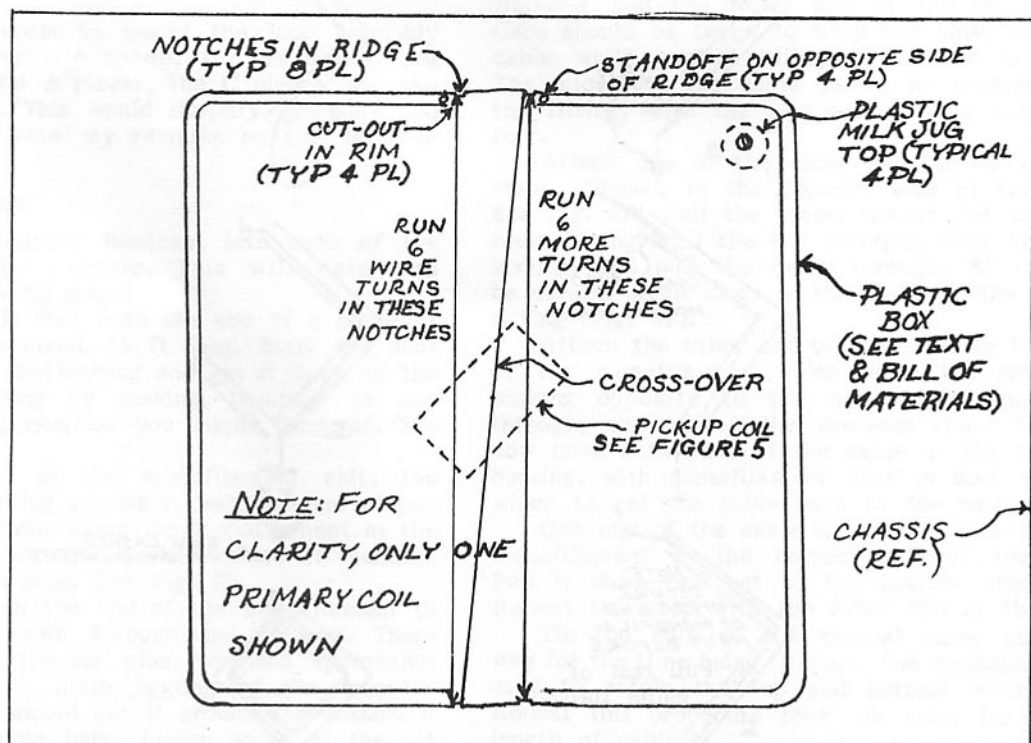 NOTCHES IN RIDGE
(TYP 8 PL)
STANDOFF ON OPPOSITE SIDE
OF RIDGE (TYP 4 PL)
CUT-OUT
IN RIM
(TYP 4 PL)
PLASTIC
MILK JUG
TOP (TYPICAL
4 PL)
RUN
6
WIRE
TURNS
IN THESE
NOTCHES
RUN
6
MORE
TURNS
IN THESE
NOTCHES
PLASTIC
BOX
(SEE TEXT
& BILL OF
MATERIALS)
CROSS-OVER
PICK-UP COIL
SEE FIGURE 5
NOTE: FOR
CLARITY, ONLY ONE
PRIMARY COIL
SHOWN
CHASSIS
(REF.)